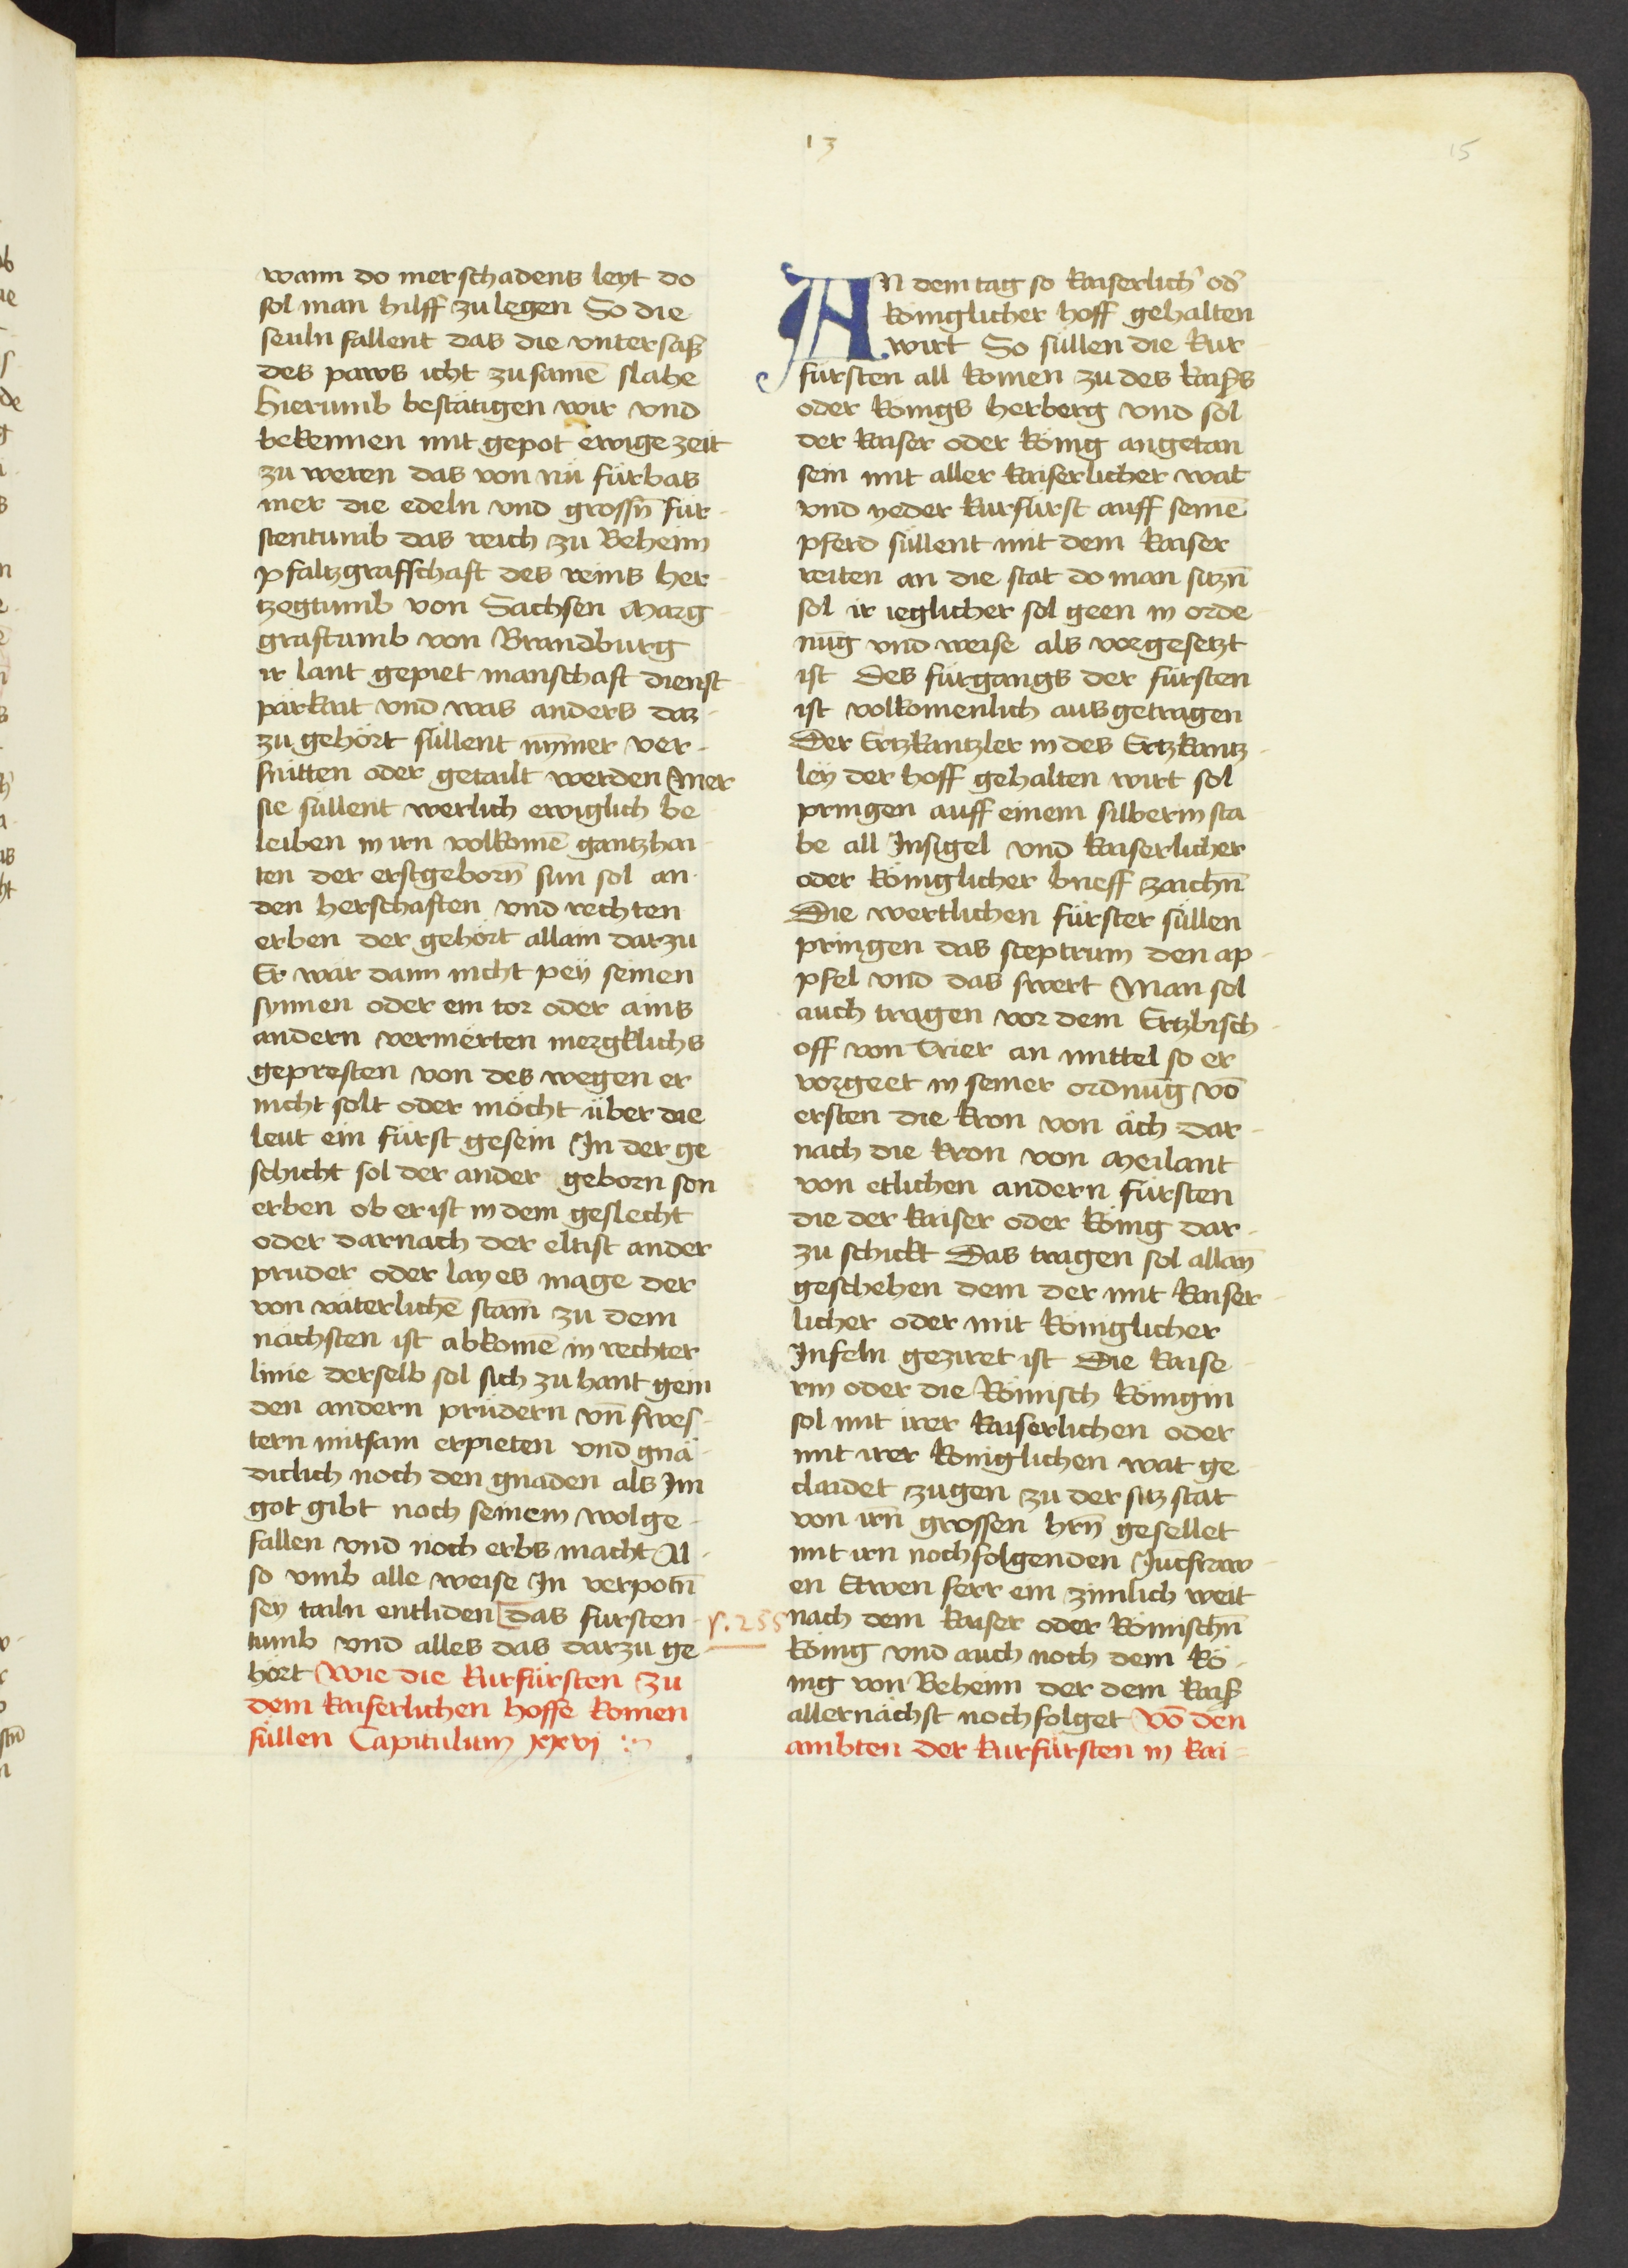 13
15
wann do mer schadens leyt do
sol man hilff zu legen So die
seuln fallent das die vntersaß
des paws icht zusamē slahe
hierumb bestätigen wir vnd
bekennen mit gepot ewige zeit
zu weren das von nü fürbas
mer die edeln vnd grossn̄ für-
stentumb das reich zu Beheim
pfaltzgraffschaft des reins her-
tzogtumb von Sachsen Marg-
graftumb von Brandburg
ir lant gepiet manschaft dienst-
pärkait vnd was anders dar-
zu gehört süllent nym̄er ver-
snitten oder getailt werden Mer
sie süllent werlich ewiglich be-
leiben in irn volkomē gantzhai-
ten der erstgeborn̄ sun sol an
den herschaften vnd rechten
erben der gehört allain darzu
Er wär dann nicht pey seinen
synnen oder ein tor oder ains
andern vermerten mergklichs
gepresten von des wegen er
nicht solt oder möcht über die
leut ein fürst gesein In der ge-
schicht sol der ander geborn son
erben ob er ist in dem geslecht
oder darnach der eltist ander
pruder oder layes mage der
von väterlichē stam̄ zu dem
nächsten ist abkomē in rechter
linie derselb sol sich zu hant gein
den andern prüdern vn̄ swes-
tern mitsam erpieten vnd gnä-
diclich noch den gnaden als Im
got gibt noch seinem wolge-
fallen vnd noch erbs macht Al-
so vmb alle weise In verpotn̄
sey tailn entliden das fursten-
tumb vnd alles das darzu ge-
hört Wie die kurfürsten zu
dem kaiserlichen hoffe komen
süllen Capitulum xxvi
s. 255
AN dem tag so kaiserlich' od'
königlicher hoff gehalten
wirt So süllen die kur-
fürsten all komen zu des kaiß's
oder königs herberg vnd sol
der kaiser oder könig angetan
sein mit aller kaiserlicher wat
vnd yeder kurfürst auff seinē
pferd süllent mit dem kaiser
reiten an die stat do man sitzn̄
sol ir ieglicher sol geen in orde-
nūg vnd weise als vorgesetzt
ist Des fürgangs der fürsten
ist volkomenlich ausgetragen
Der Ertzkantzler in des Ertzkantz-
ley der hoff gehalten wirt sol
pringen auff einem silberin sta-
be all Insigel vnd kaiserlicher
oder königlicher brieff zaichn̄
Die wertlichen fürster süllen
pringen das sceptrum den ap-
pfel vnd das swert Man sol
auch tragen vor dem Ertzbisch-
off von Trier an mittel so er
vorgeet in seiner ordnūg vō
ersten die kron von äch dar-
nach die kron von Meilant
von etlichen andern fürsten
die der kaiser oder könig dar-
zu schickt Das tragen sol allan̄
geschehen dem der mit kaiser-
licher oder mit königlicher
Infeln geziret ist Die kaise-
rin oder die Römisch königin
sol mit irer kaiserlichen oder
mit irer königlichen wat ge-
claidet zugen zu der sitz stat
von irn̄ grossen hrn̄ gesellet
mit irn nochfolgenden Jūcfraw-
en Etwen ferr ein zimlich weit
nach dem kaiser oder Römischn̄
könig vnd auch noch dem kö-
nig von Beheim der dem kaiß
allernächst nochfolget Vō den
ambten der kurfürsten in kai-